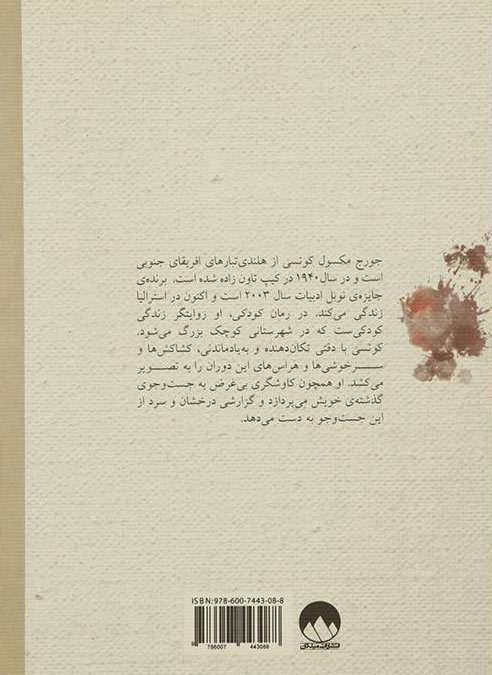 جورج مکسول کوتسی از هلندی‌تبارهای افریقای جنوبی
است و در سال ۱۹۴۰ در کیپ تاون زاده شده است. برنده‌ی
جایزه‌ی نوبل ادبیات سال ۲۰۰۳ است و اکنون در استرالیا
زندگی می‌کند. در رمان کودکی، او روایتگر زندگی
کودکی‌ست که در شهرستانی کوچک بزرگ می‌شود.
کوتسی با دقتی تکان‌دهنده و به‌یادماندنی، کشاکش‌ها و
سرخوشی‌ها و هراس‌های این دوران را به تصویر
می‌کشد. او همچون کاوشگری بی‌غرض به جست‌وجوی
گذشته‌ی خویش می‌پردازد و گزارشی درخشان و سرد از
این جست‌وجو به دست می‌دهد.
ISBN: 978-600-7443-08-8
9 786007 443088
انتشارات میلکان